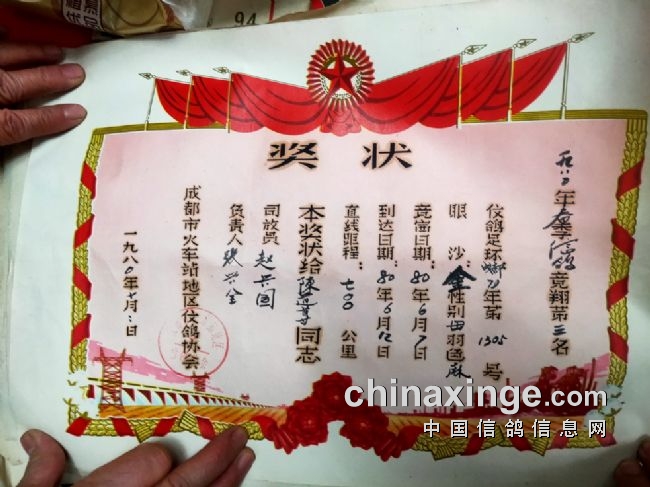 94
奖状
一九八〇年春季 竞翔第三名
信鸽足环 年第1305号
眼沙:金 性别 羽色麻
竞翔日期:80年6月7日
到达日期:80年6月12日
直线距程:七〇〇公里
本奖状给陈 同志
司放员 赵兴国
负责人 张兴全
成都市火车站地区信鸽协会
一九八〇年 月 日
chinaxinge.com
中国信鸽信息网